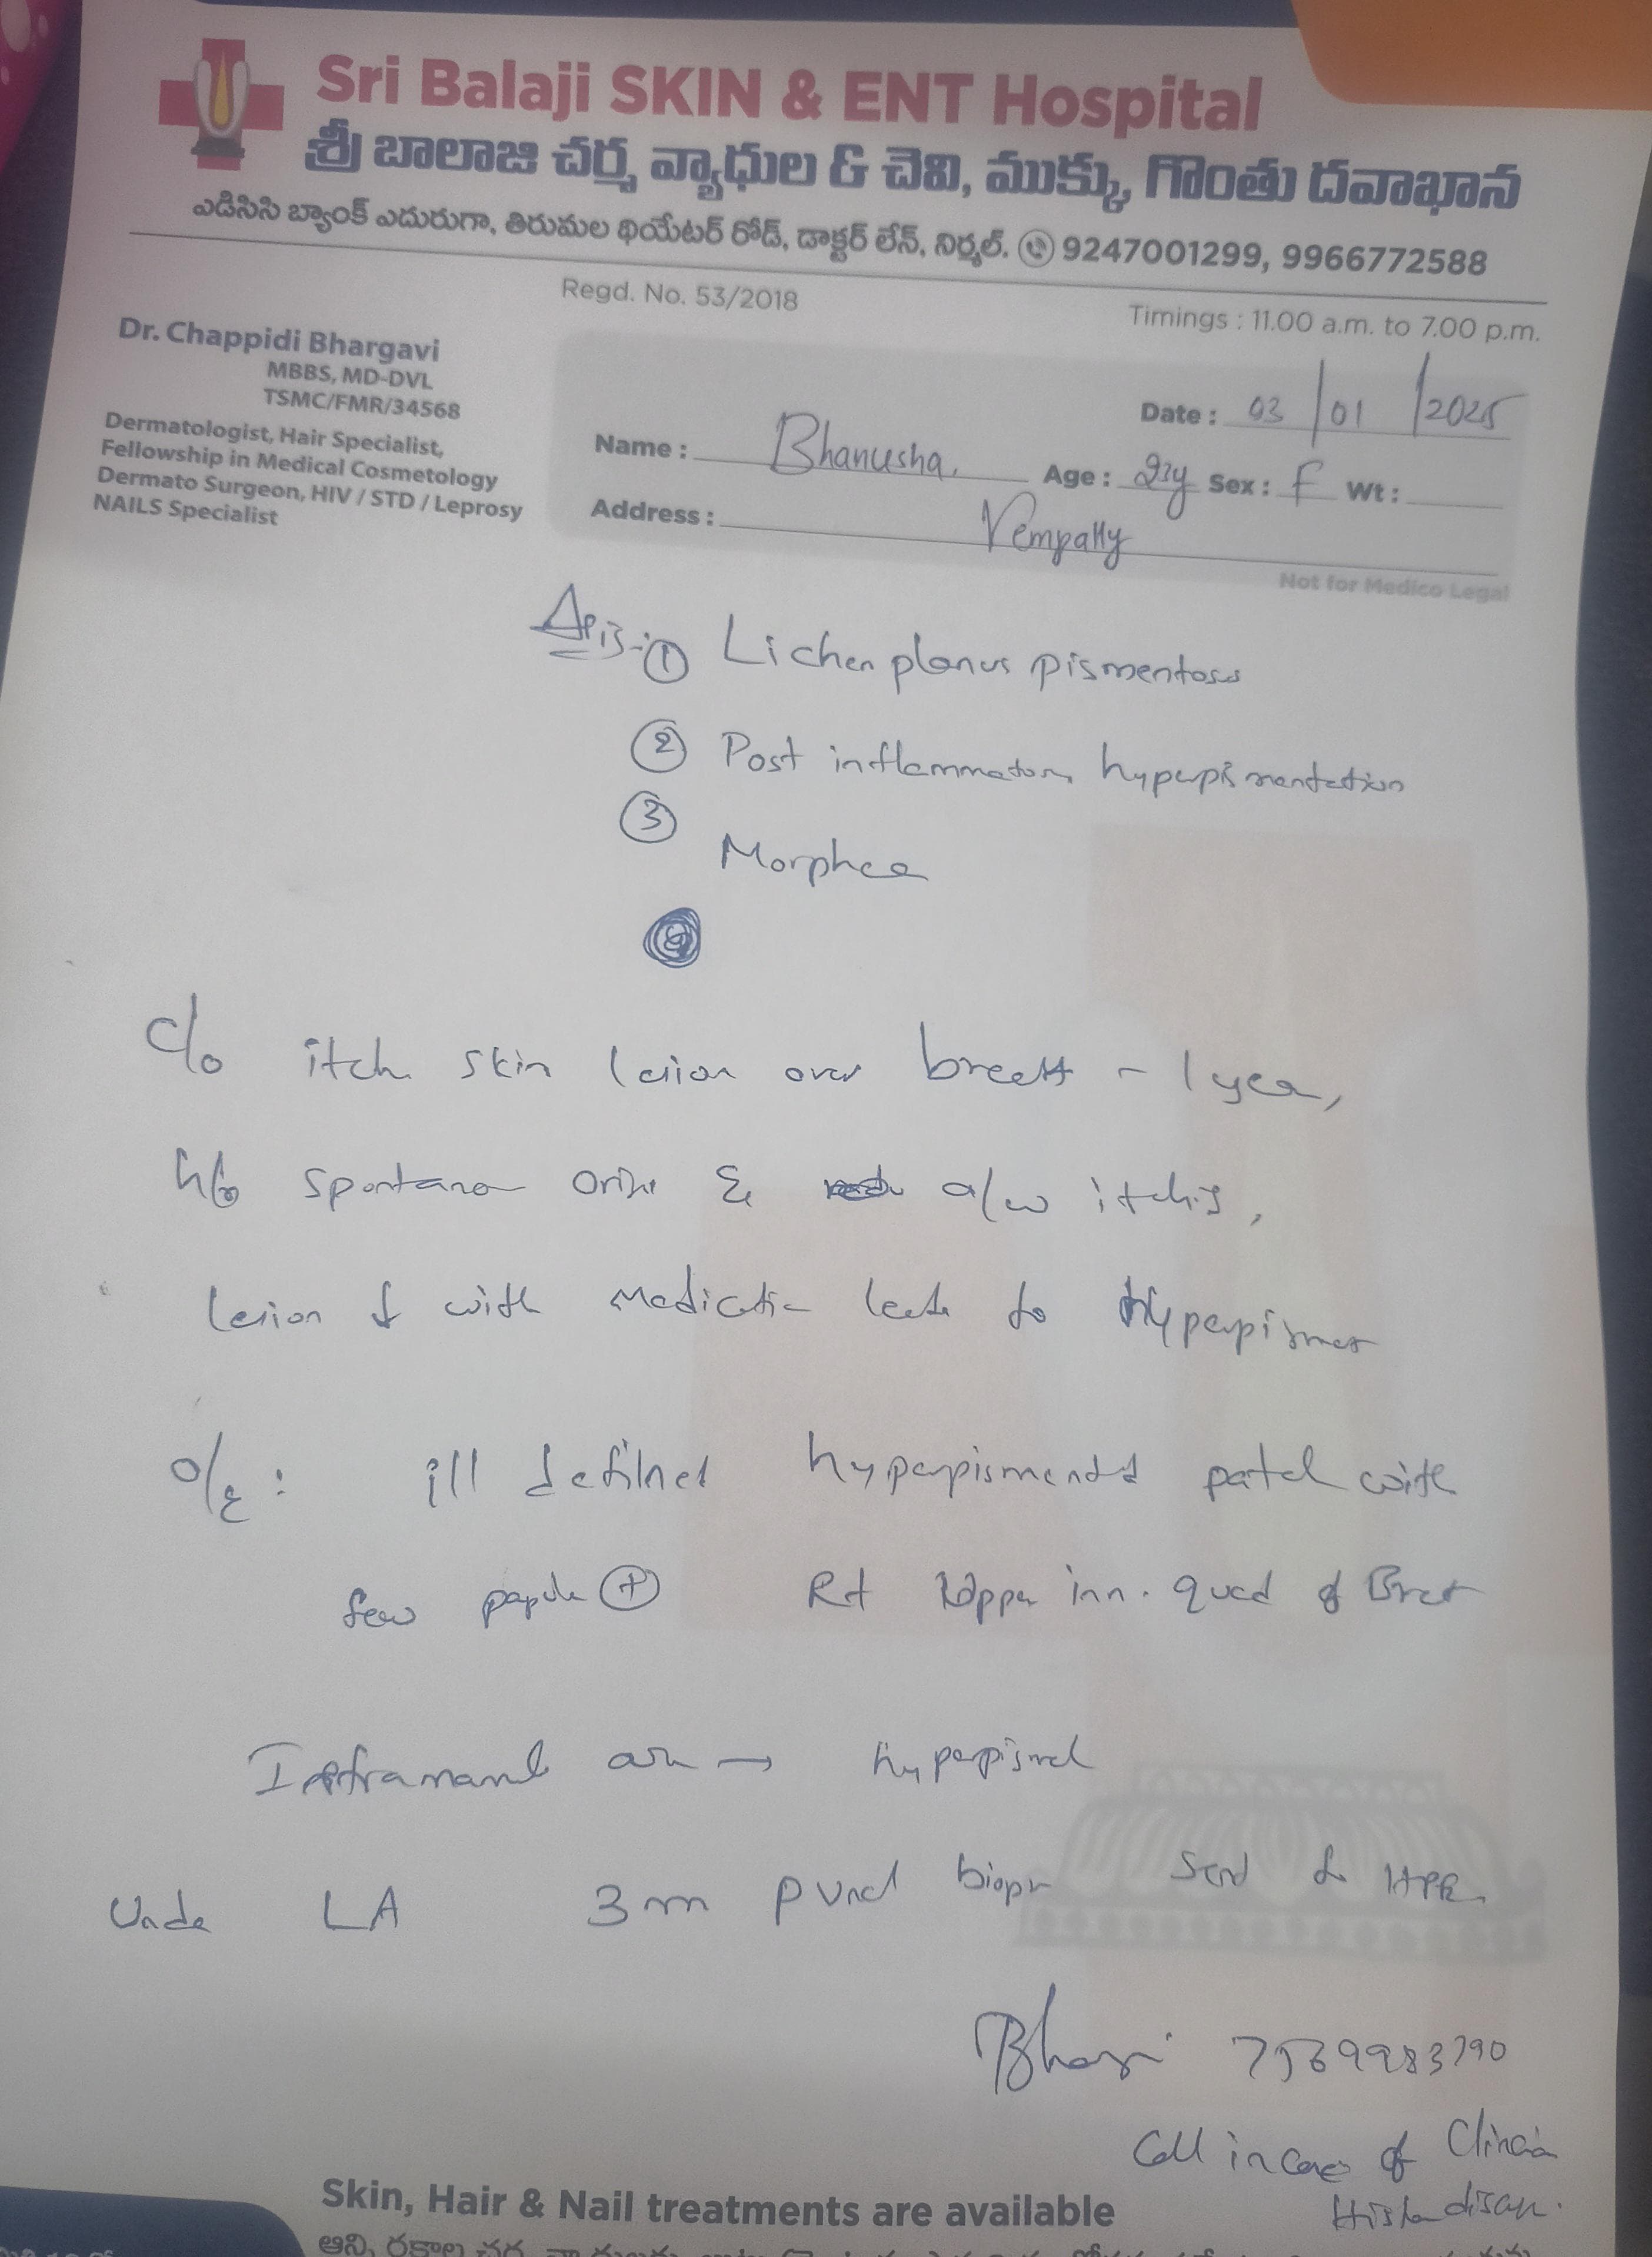 Sri Balaji SKIN & ENT Hospital
శ్రీ బాలాజి చర్మ వ్యాధుల & చెవి, ముక్కు, గొంతు దవాఖాన
ఎడిసిసి బ్యాంక్ ఎదురుగా, తిరుమల థియేటర్ రోడ్, డాక్టర్ లేన్, నిర్మల్. 9247001299, 9966772588
Regd. No. 53/2018
Timings : 11.00 a.m. to 7.00 p.m.
Dr. Chappidi Bhargavi
MBBS, MD-DVL
TSMC/FMR/34568
Dermatologist, Hair Specialist,
Fellowship in Medical Cosmetology
Dermato Surgeon, HIV / STD / Leprosy
NAILS Specialist
Date : 03/01/2025
Name : Bhanusha, Age : 23y Sex : F Wt :
Address : Vempally
Not for Medico Legal
① Lichen planus pigmentosus
② Post inflammatory hyperpigmentation
③ Morphea
c/o itch skin lesion over breast - 1 year,
h/o spontaneo origin & a/w itching,
lesion ↓ with medication leads to Hyperpigmen
o/e : ill defined hyperpigmented patch with
few papule ⊕ Rt Upper inn. quad of Breast
Inframam area → hyperpigmed
Under LA 3mm punch biopsy send for HPE
7569983790
Call in case of Clinical
Histo discr.
Skin, Hair & Nail treatments are available
ఆన్ని రకాల చర్మ